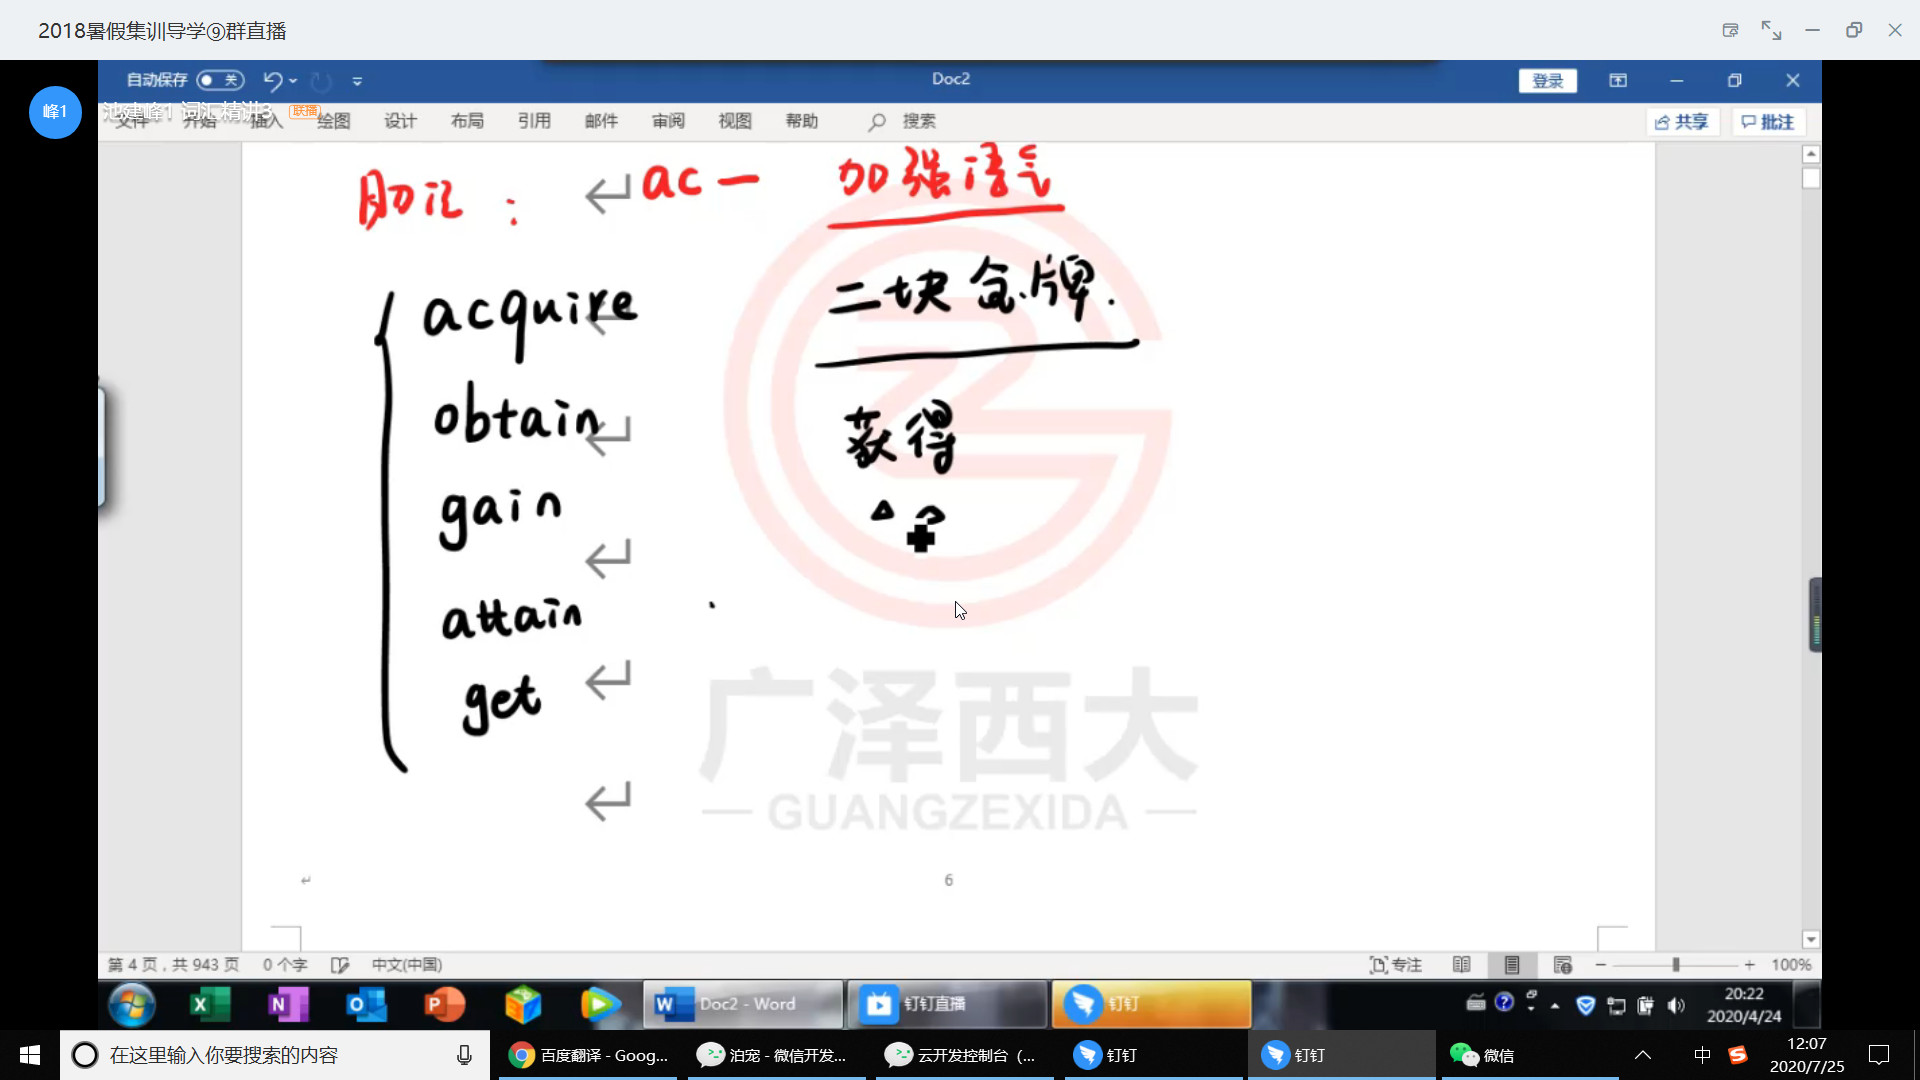 2018暑假集训导学⑨群直播
自动保存 关 Doc2 登录
峰1 池建峰1 词汇精讲3 联播
文件 开始 插入 绘图 设计 布局 引用 邮件 审阅 视图 帮助 搜索 共享 批注
助记： ac — 加强语气
acquire 二块金牌.
obtain 获得
gain
attain
get
广泽西大
— GUANGZEXIDA —
6
第 4 页，共 943 页 0 个字 中文(中国) 专注 100%
Doc2 - Word 钉钉直播 钉钉 20:22
2020/4/24
在这里输入你要搜索的内容 百度翻译 - Goog... 泊宠 - 微信开发... 云开发控制台 (... 钉钉 钉钉 微信 中 12:07
2020/7/25